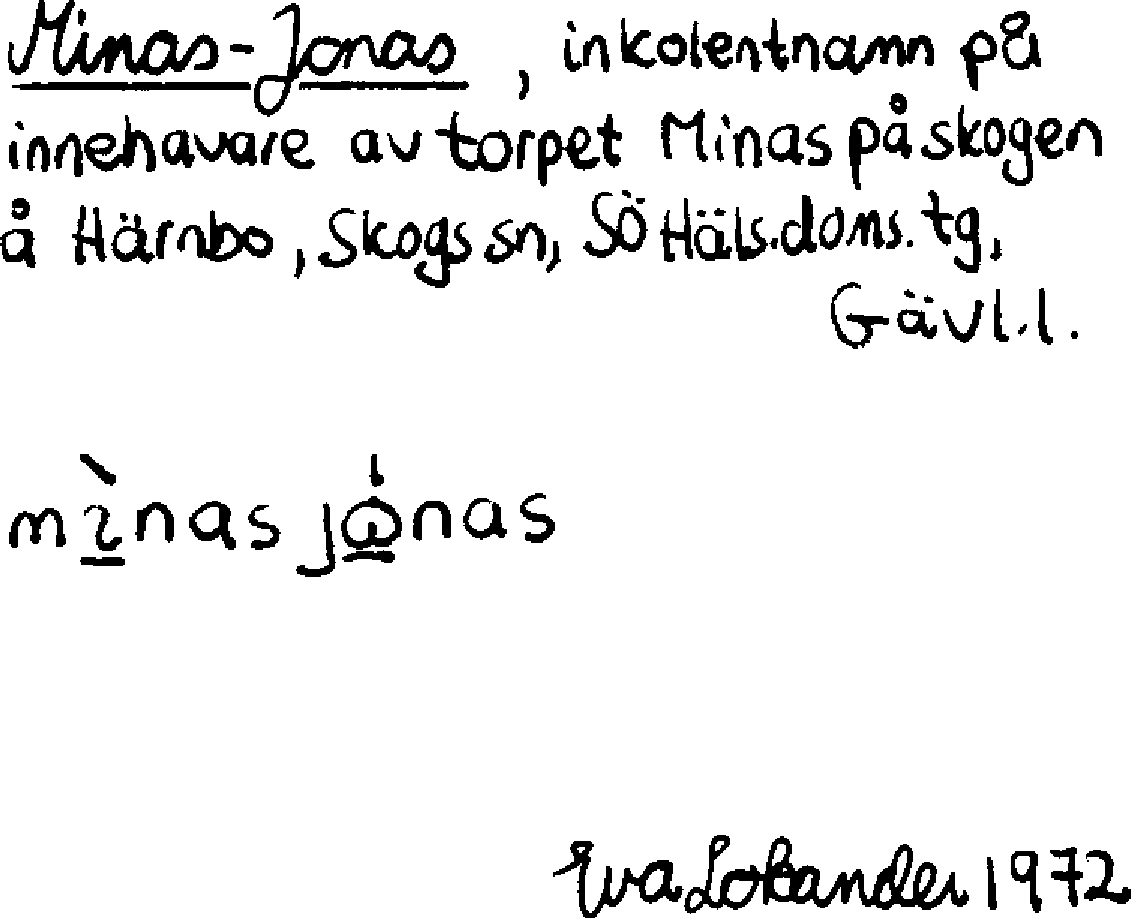 Minas-Jonas, inkolentnamn på
innehavare av torpet Minas på skogen
å Härnbo, Skogs sn, Sö Häls. doms. tg,
Gävl.l.
mı̀nas jω̇nas
Eva Lobander 1972